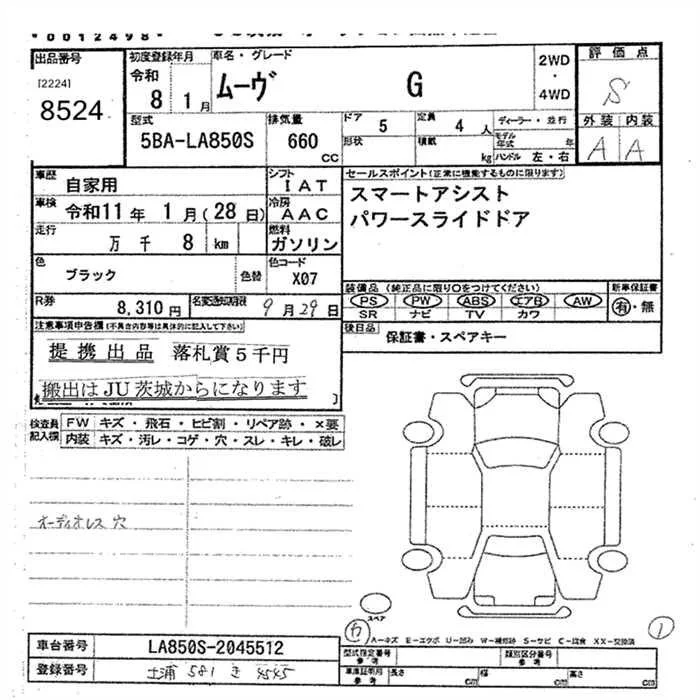 00012498
出品番号 初度登録年月 車名・グレード 2WD・4WD 評価点
[2224] 8524 令和 8 1月 ムーヴ G S
型式 排気量 ドア 5 定員 4人 ディーラー・並行 外装 内装
5BA-LA850S 660cc 形状 積載 kg モデル年式 年 ハンドル 左・右 A A
車歴 自家用 シフト IAT セールスポイント(正常に機能するものに限ります)
車検 令和11年 1月(28日) 冷房 AAC スマートアシスト
走行 万 千 8 km 燃料 ガソリン パワースライドドア
色 ブラック 色替 色コード X07
装備品(純正品に限り○をつけてください) 新車保証書
R券 8,310円 名変通知期限 9月29日 PS PW ABS エアB AW 有・無
SR ナビ TV カワ
注意事項申告欄(不具合内容等は具体的に記入して下さい) 後日品 保証書・スペアキー
提携出品 落札賞5千円
搬出はJU茨城からになります
検査員記入欄 FW キズ・飛石・ヒビ割・リペア跡・×要
内装 キズ・汚レ・コゲ・穴・スレ・キレ・破レ
オーディオレス 穴
スペア
カ A-キズ E-エクボ U-凹み W-補修跡 S-サビ C-腐食 XX-交換済 1
車台番号 LA850S-2045512 型式指定番号 参考 類別区分番号 参考
登録番号 土浦 581 き 4545 車庫証明用 参考 長さ cm 幅 cm 高さ cm